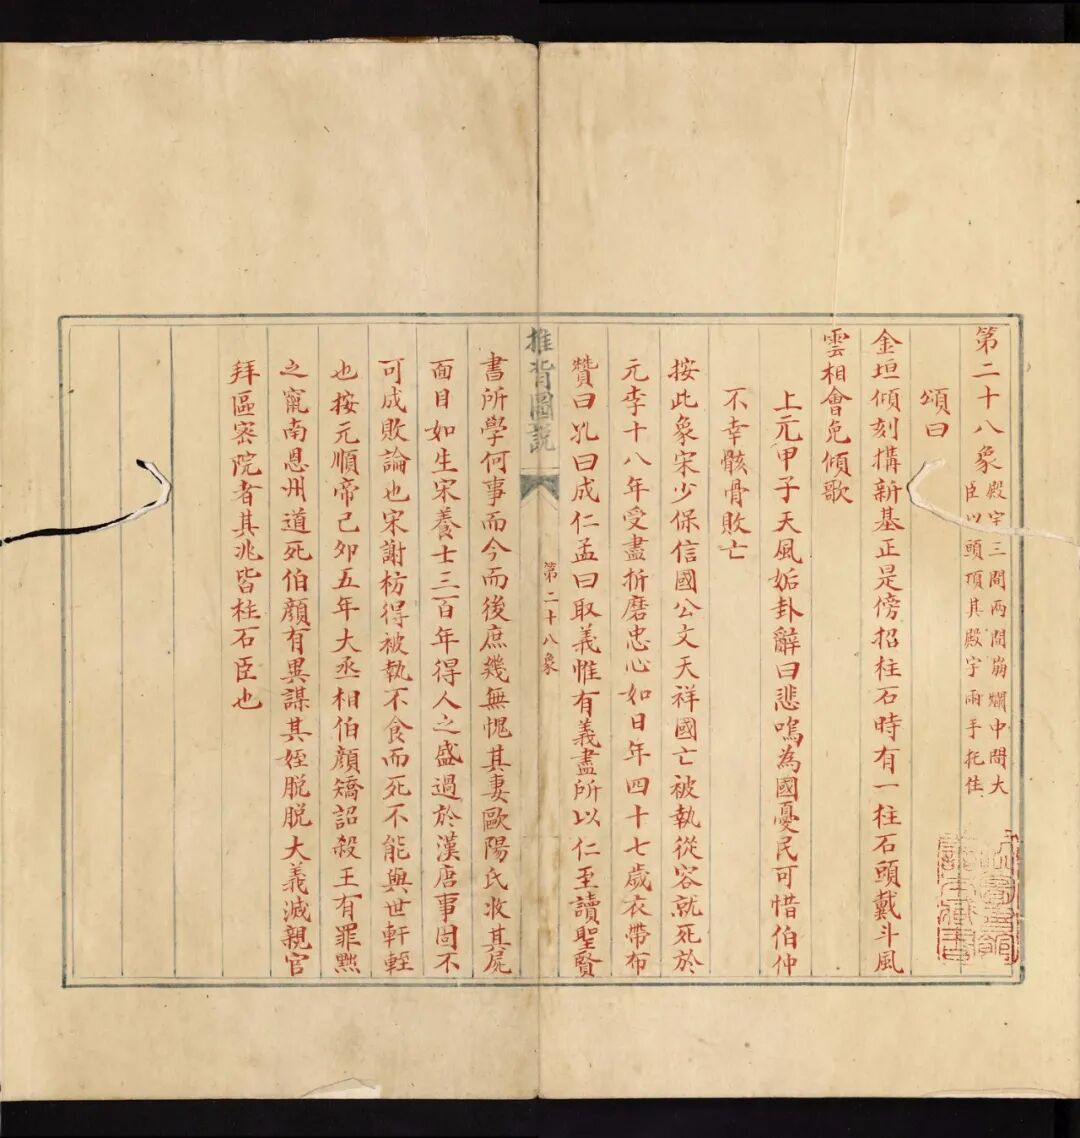 第二十八象
殿宇三間兩間崩爛中間大
臣以頭頂其殿宇兩手托住
頌曰
金垣傾刻搆新基正是傍招柱石時有一柱石頭戴斗風
雲相會免傾歌
上元甲子天風姤卦辭曰悲嗚為國憂民可惜伯仲
不幸骸骨敗亡
按此象宋少保信國公文天祥國亡被執從容就死於
元李十八年受盡折磨忠心如日年四十七歲衣帶布
贊曰孔曰成仁孟曰取義惟有義盡所以仁至讀聖賢
推背圖說
第二十八象
書所學何事而今而後庶幾無愧其妻歐陽氏收其屍
面目如生宋養士三百年得人之盛過於漢唐事固不
可成敗論也宋謝枋得被執不食而死不能與世軒輊
也按元順帝己卯五年大丞相伯顏矯詔殺王有罪黜
之竄南恩州道死伯顏有異謀其姪脫脫大義滅親官
拜區密院者其兆皆柱石臣也